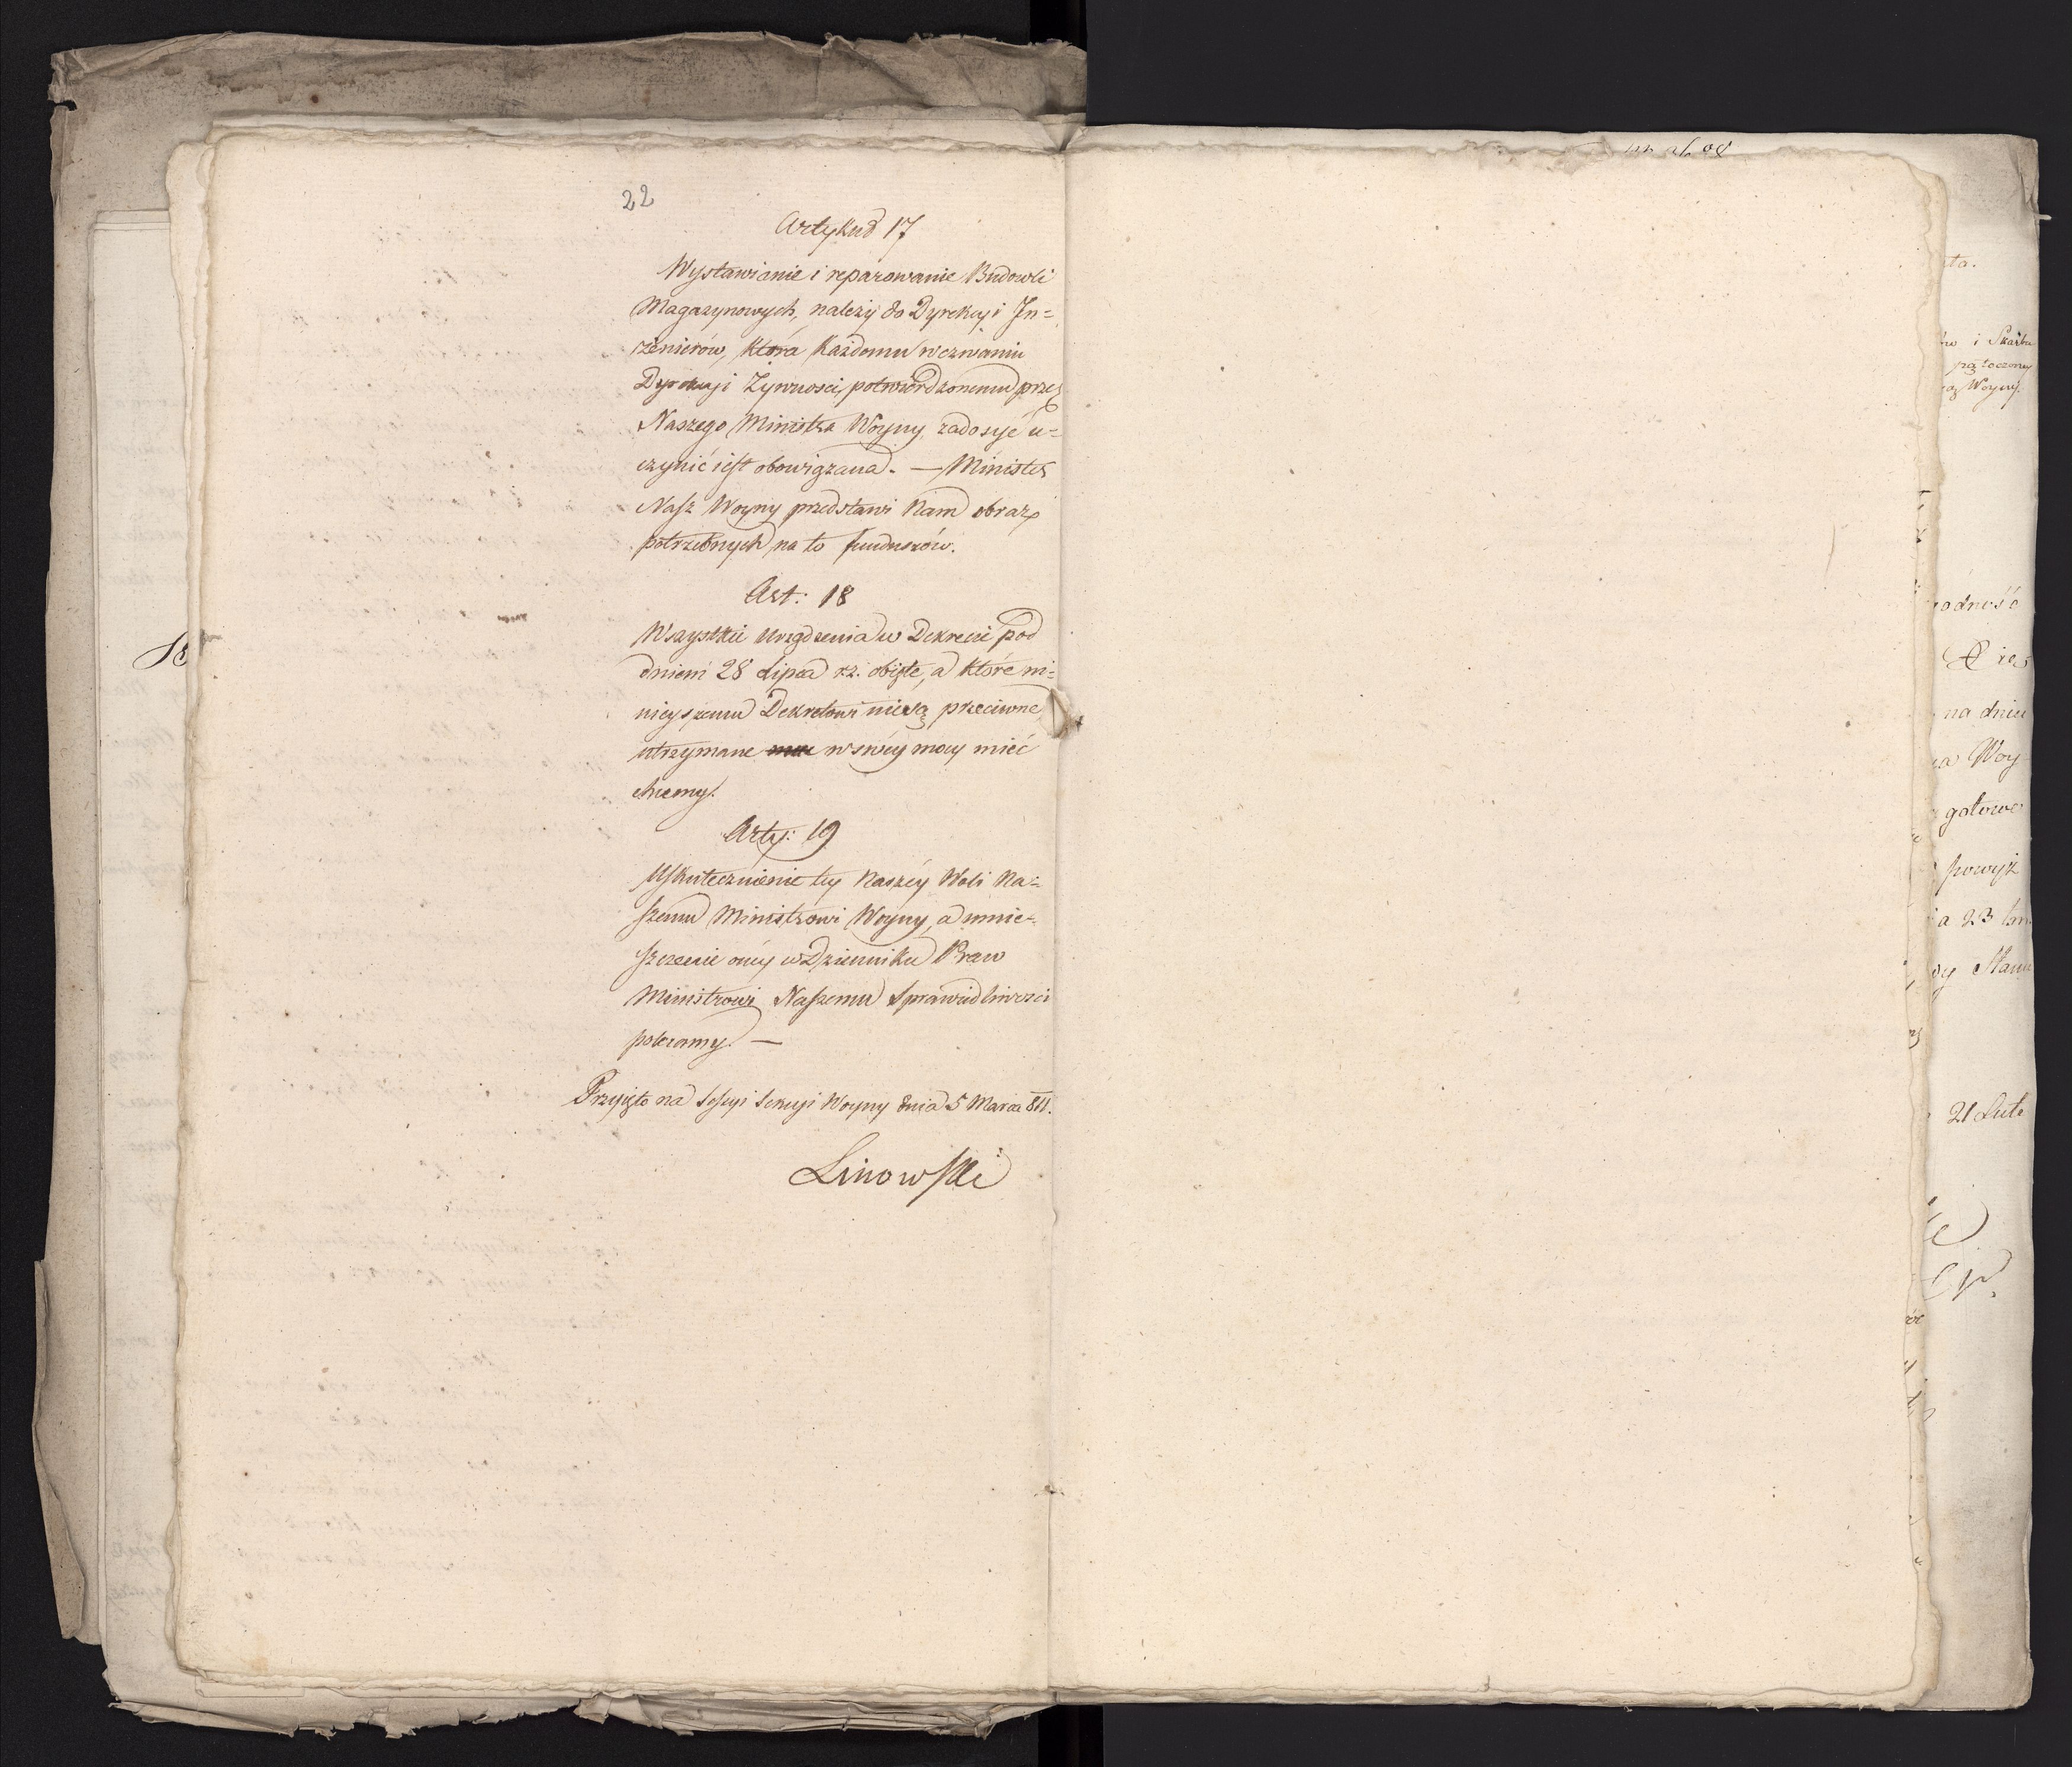 22
Artykuł 17
Wystawianie i reparowanie Budowli
Magazynowych, należy do Dyrekcyi In=
żenierów, która każdemu wezwaniu
Dyrekcyi Zywnosci, potwierdzonemu przez
Naszego Ministra Woyny, zadosyć u=
czynić iest obowiązana. — Minister
Nasz Woyny przedstawi Nam obraz
potrzebnych na to funduszów.
Art: 18
Wszystkie urządzenia w Dekrecie pod
dniem 28 Lipca rz. obięte, a które ni=
nieyszemu Dekretowi niesą przeciwne,
utrzymane w swéy mocy mieć
chcemy.
Arty: 19
Uskutecznienie téy Naszéy Woli Na=
szemu Ministrowi Woyny, a umie=
szczenie onéy w Dzienniku Praw
Ministrowi Naszemu Sprawiedliwosci
polecamy. —
Przyięto na Sessyi Sekcyi Woyny dnia 5 Marca 811.
Linowski
ta.
i Skarbu
Woyny.
na dniu
Woy
gotowo
powyż
a 23
21 Lute